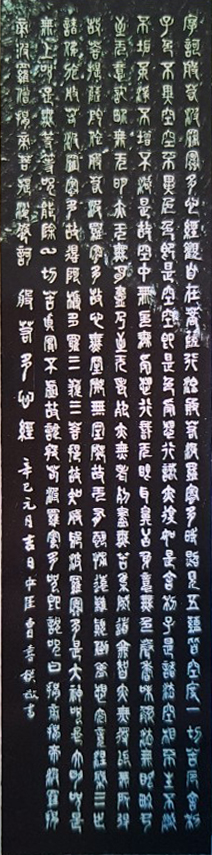 摩訶般若波羅蜜多心經觀自在菩薩行深般若波羅蜜多時照見五蘊皆空度一切苦厄舍利
子色不異空空不異色色即是空空即是色受想行識亦復如是舍利子是諸法空相不生不滅
不垢不淨不增不減是故空中無色無受想行識無眼耳鼻舌身意無色聲香味觸法無眼界乃
至無意識界無無明亦無無明盡乃至無老死亦無老死盡無苦集滅道無智亦無得以無所得
故菩提薩埵依般若波羅蜜多故心無罣礙無罣礙故無有恐怖遠離顛倒夢想究竟涅槃三世
諸佛依般若波羅蜜多故得阿耨多羅三藐三菩提故知般若波羅蜜多是大神咒是大明咒是
無上咒是無等等咒能除一切苦真實不虛故說般若波羅蜜多咒即說咒曰揭諦揭諦波羅揭
諦波羅僧揭諦菩提薩婆訶 般若多心經 辛巳元月吉日 敬書